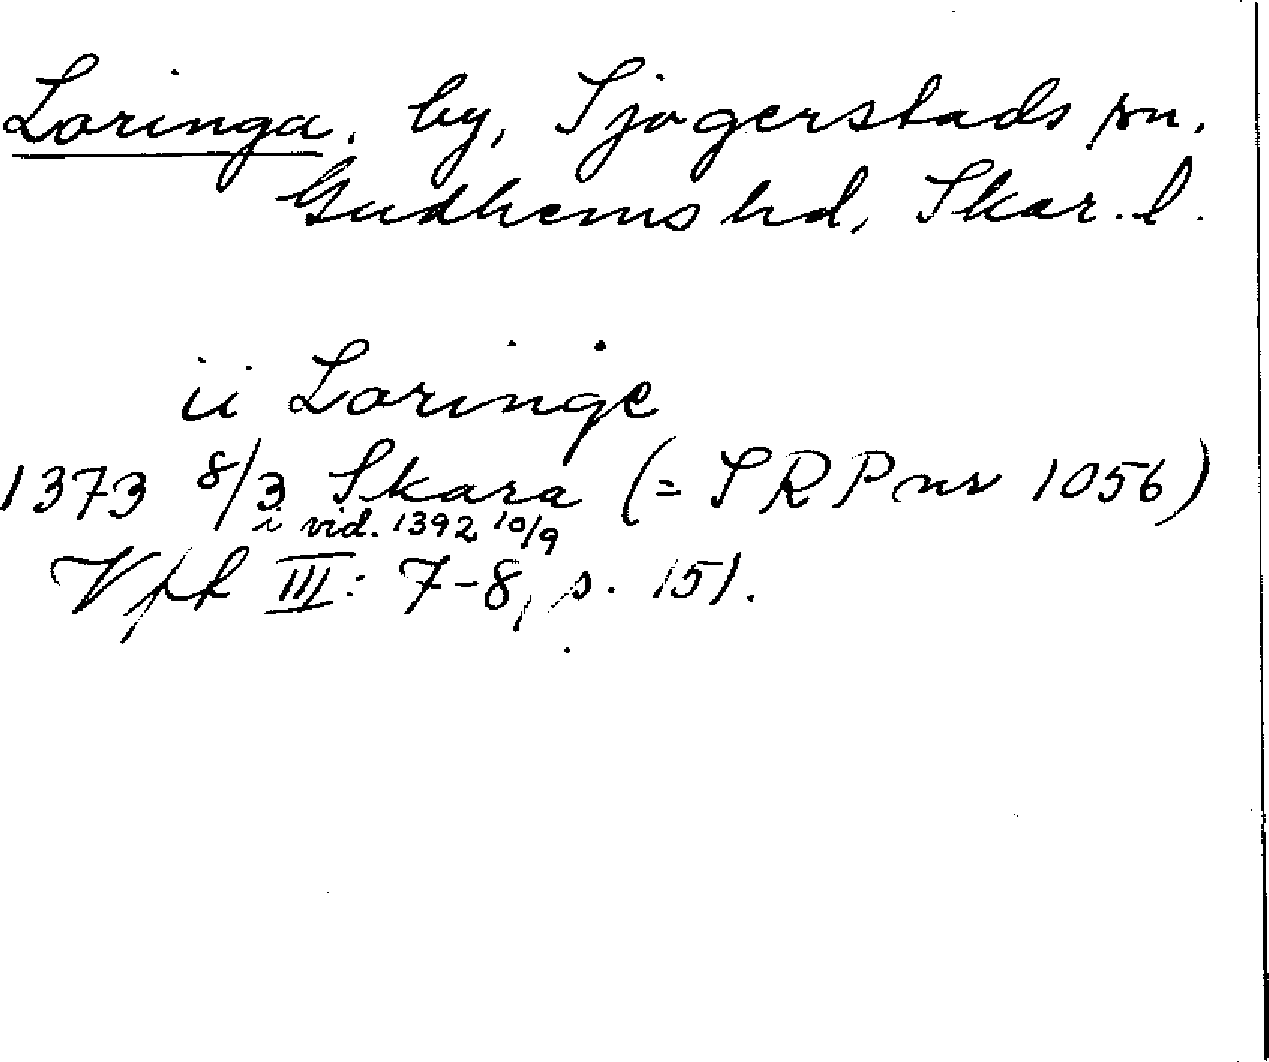 Loringa, by, Sjogerstads sn.
Gudhems hd, Skar. l.
ii Loringe
1373 8/3 Skara (= SRP nr 1056)
i vid. 1392 10/9
Vpk III: 7-8, s. 151.